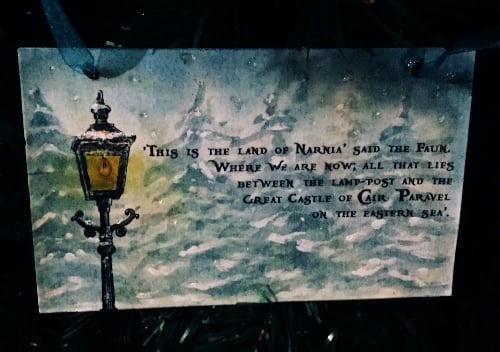 'This is the land of Narnia' said the Faun.
Where we are now; all that lies
between the lamp-post and the
Great Castle of Cair Paravel
on the eastern sea'.